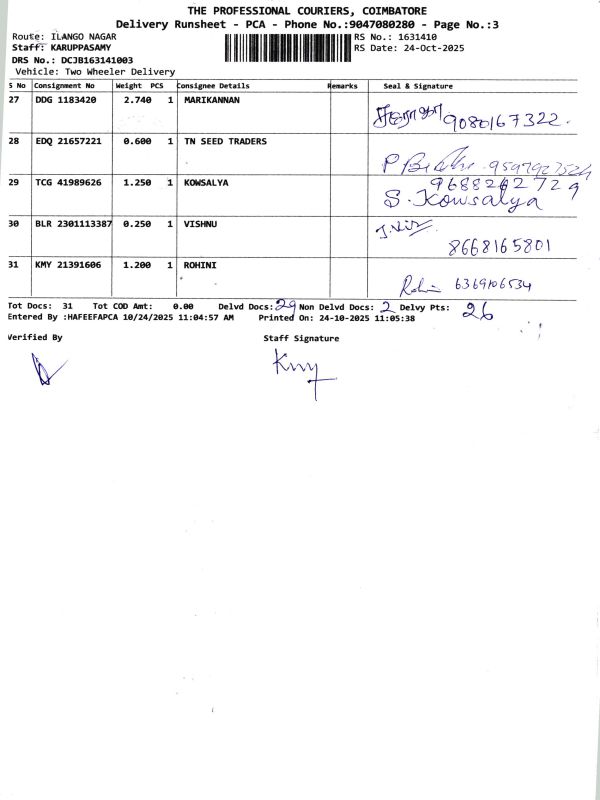 THE PROFESSIONAL COURIERS, COIMBATORE
Delivery Runsheet - PCA - Phone No.:9047080280 - Page No.:3
Route: ILANGO NAGAR RS No.: 1631410
Staff: KARUPPASAMY RS Date: 24-Oct-2025
DRS No.: DCJB163141003
Vehicle: Two Wheeler Delivery
S No Consignment No Weight PCS Consignee Details Remarks Seal & Signature
27 DDG 1183420 2.740 1 MARIKANNAN
9080167322.
28 EDQ 21657221 0.600 1 TN SEED TRADERS
29 TCG 41989626 1.250 1 KOWSALYA 9688262729
S. Kowsalya
30 BLR 2301113387 0.250 1 VISHNU
8668165801
31 KMY 21391606 1.200 1 ROHINI
6369106534
Tot Docs: 31 Tot COD Amt: 0.00 Delvd Docs: 29 Non Delvd Docs: 2 Delvy Pts: 26
Entered By :HAFEEFAPCA 10/24/2025 11:04:57 AM Printed On: 24-10-2025 11:05:38
Verified By Staff Signature